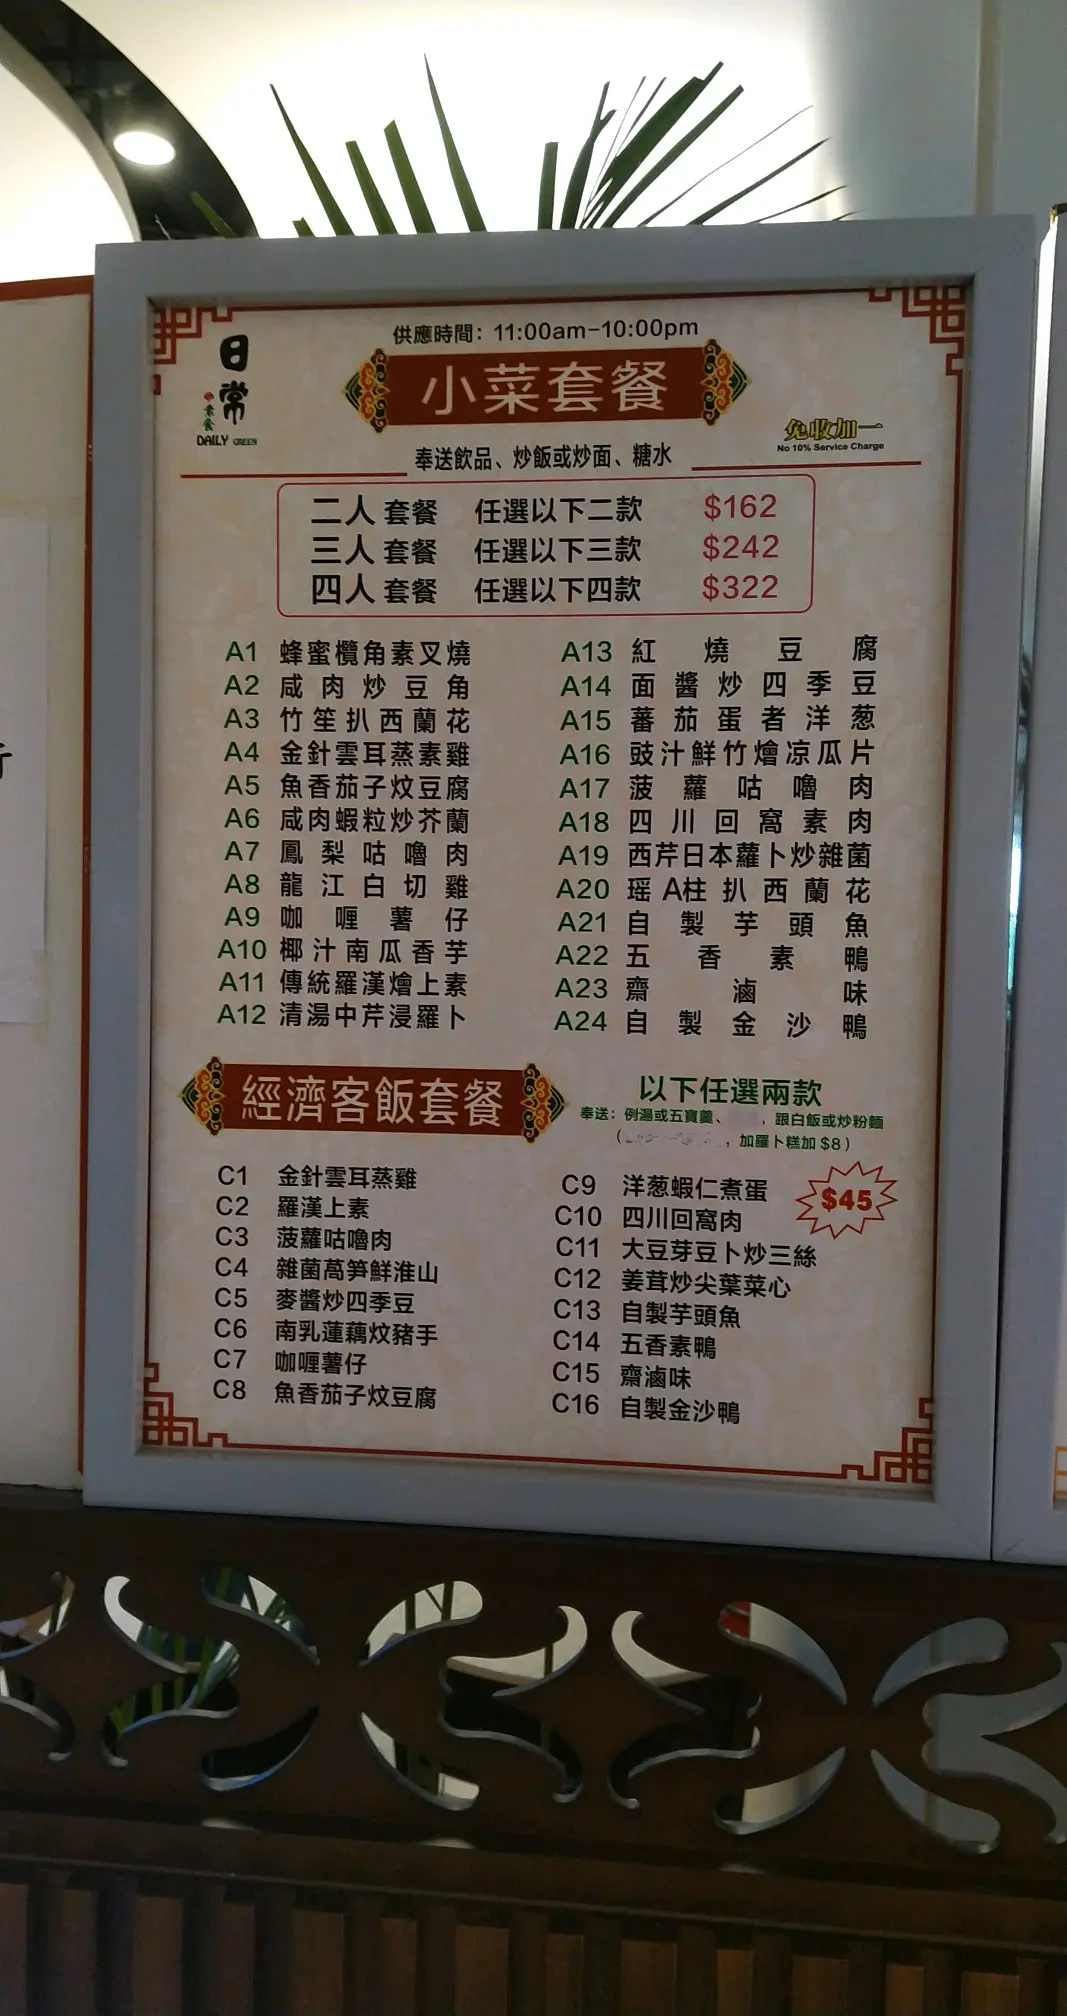 供應時間：11:00am-10:00pm
日常
素食
DAILY GREEN
小菜套餐
免收加一
No 10% Service Charge
奉送飲品、炒飯或炒面、糖水
二人套餐 任選以下二款 $162
三人套餐 任選以下三款 $242
四人套餐 任選以下四款 $322
A1 蜂蜜欖角素叉燒
A2 咸肉炒豆角
A3 竹笙扒西蘭花
A4 金針雲耳蒸素雞
A5 魚香茄子炆豆腐
A6 咸肉蝦粒炒芥蘭
A7 鳳梨咕嚕肉
A8 龍江白切雞
A9 咖喱薯仔
A10 椰汁南瓜香芋
A11 傳統羅漢燴上素
A12 清湯中芹浸羅卜
A13 紅燒豆腐
A14 面醬炒四季豆
A15 蕃茄蛋者洋葱
A16 豉汁鮮竹燴凉瓜片
A17 菠蘿咕嚕肉
A18 四川回窩素肉
A19 西芹日本蘿卜炒雜菌
A20 瑶A柱扒西蘭花
A21 自製芋頭魚
A22 五香素鴨
A23 齋滷味
A24 自製金沙鴨
經濟客飯套餐
以下任選兩款
奉送：例湯或五寶羹、 ，跟白飯或炒粉麵
（ ，加羅卜糕加 $8）
$45
C1 金針雲耳蒸雞
C2 羅漢上素
C3 菠蘿咕嚕肉
C4 雜菌萵笋鮮淮山
C5 麥醬炒四季豆
C6 南乳蓮藕炆豬手
C7 咖喱薯仔
C8 魚香茄子炆豆腐
C9 洋葱蝦仁煮蛋
C10 四川回窩肉
C11 大豆芽豆卜炒三絲
C12 姜茸炒尖葉菜心
C13 自製芋頭魚
C14 五香素鴨
C15 齋滷味
C16 自製金沙鴨